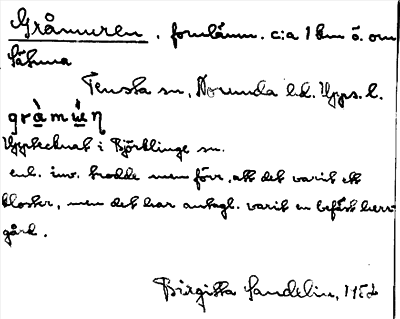 Gråmuren. fornlämn. c:a 1 km ö. om
Sätuna
Tensta sn, Norunda hd. Upps. l.
gràmún
Upptecknat i Björklinge sn.
enl. inv. trodde men förr, att det varit ett
kloster, men det har antagl. varit en befäst herr-
gård.
Birgitta Sandelin, 195